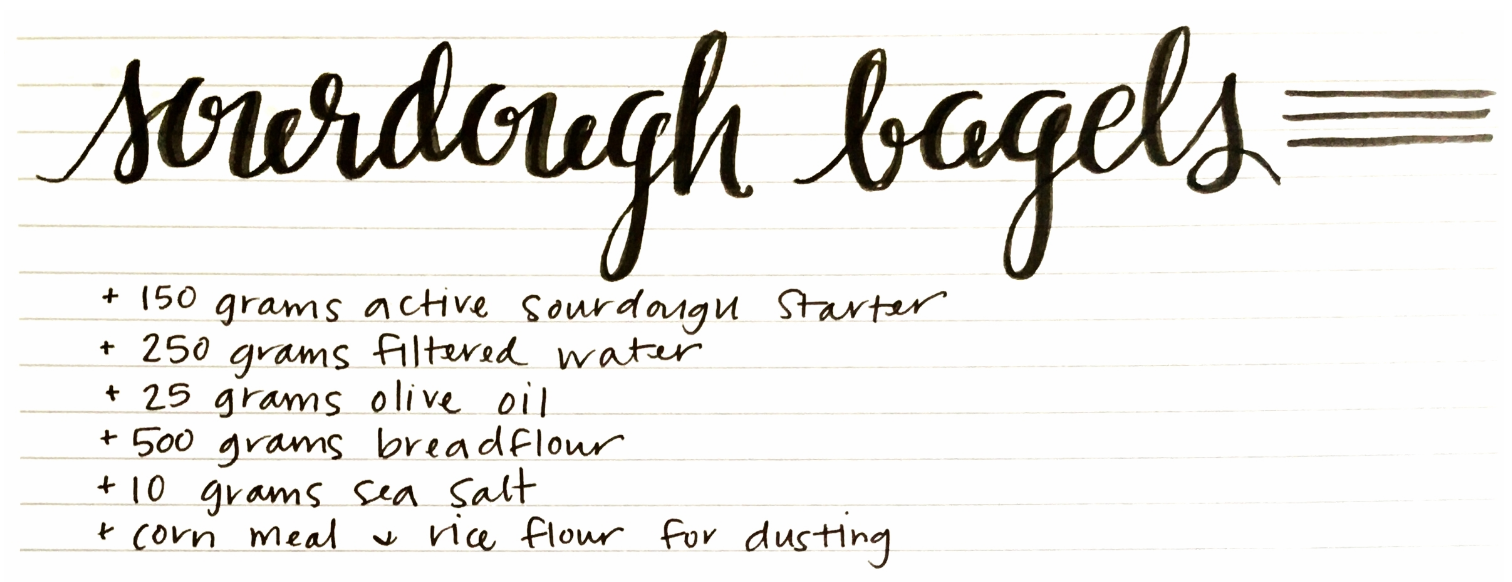 sourdough bagels
+ 150 grams active sourdough starter
+ 250 grams filtered water
+ 25 grams olive oil
+ 500 grams breadflour
+ 10 grams sea salt
+ corn meal & rice flour for dusting